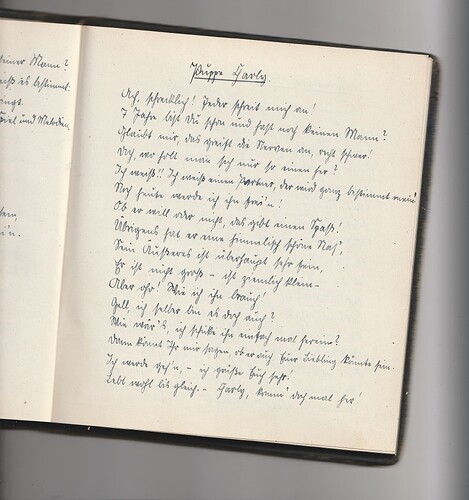 einer Mann?
weiß es bestimmt.
und Melodien,
Puppe Harly.
Ach, schrecklich! Jeder schreit mich an!
7 Jahre bist du schon und hast noch keinen Mann?
Glaubt mir, das greift die Nerven an, recht schwer!
Doch, wo holt man sich nur so einen her?
Ich weiß!! Ich weiß einen Partner, der wird ganz bestimmt mein!
Noch heute werde ich ihn frei'n!
Ob er will oder nicht, das gibt einen Spaß!
Übrigens hat er eine himmlisch schöne Nas',
Sein Äußeres ist überhaupt sehr fein,
Er ist nicht groß - ist ziemlich klein -
Aber oh! Wie ich ihn brauch!
Gell, ich selber bin es doch auch?
Wie wär's, ich schicke ihn einfach mal herein?
Dann könnt Ihr mir sagen ob er auch Euer Liebling könnte sein.
Ich werde geh'n, - ich grüße Euch sehr!
Lebt wohl bis gleich. - Harly, komm' doch mal her!